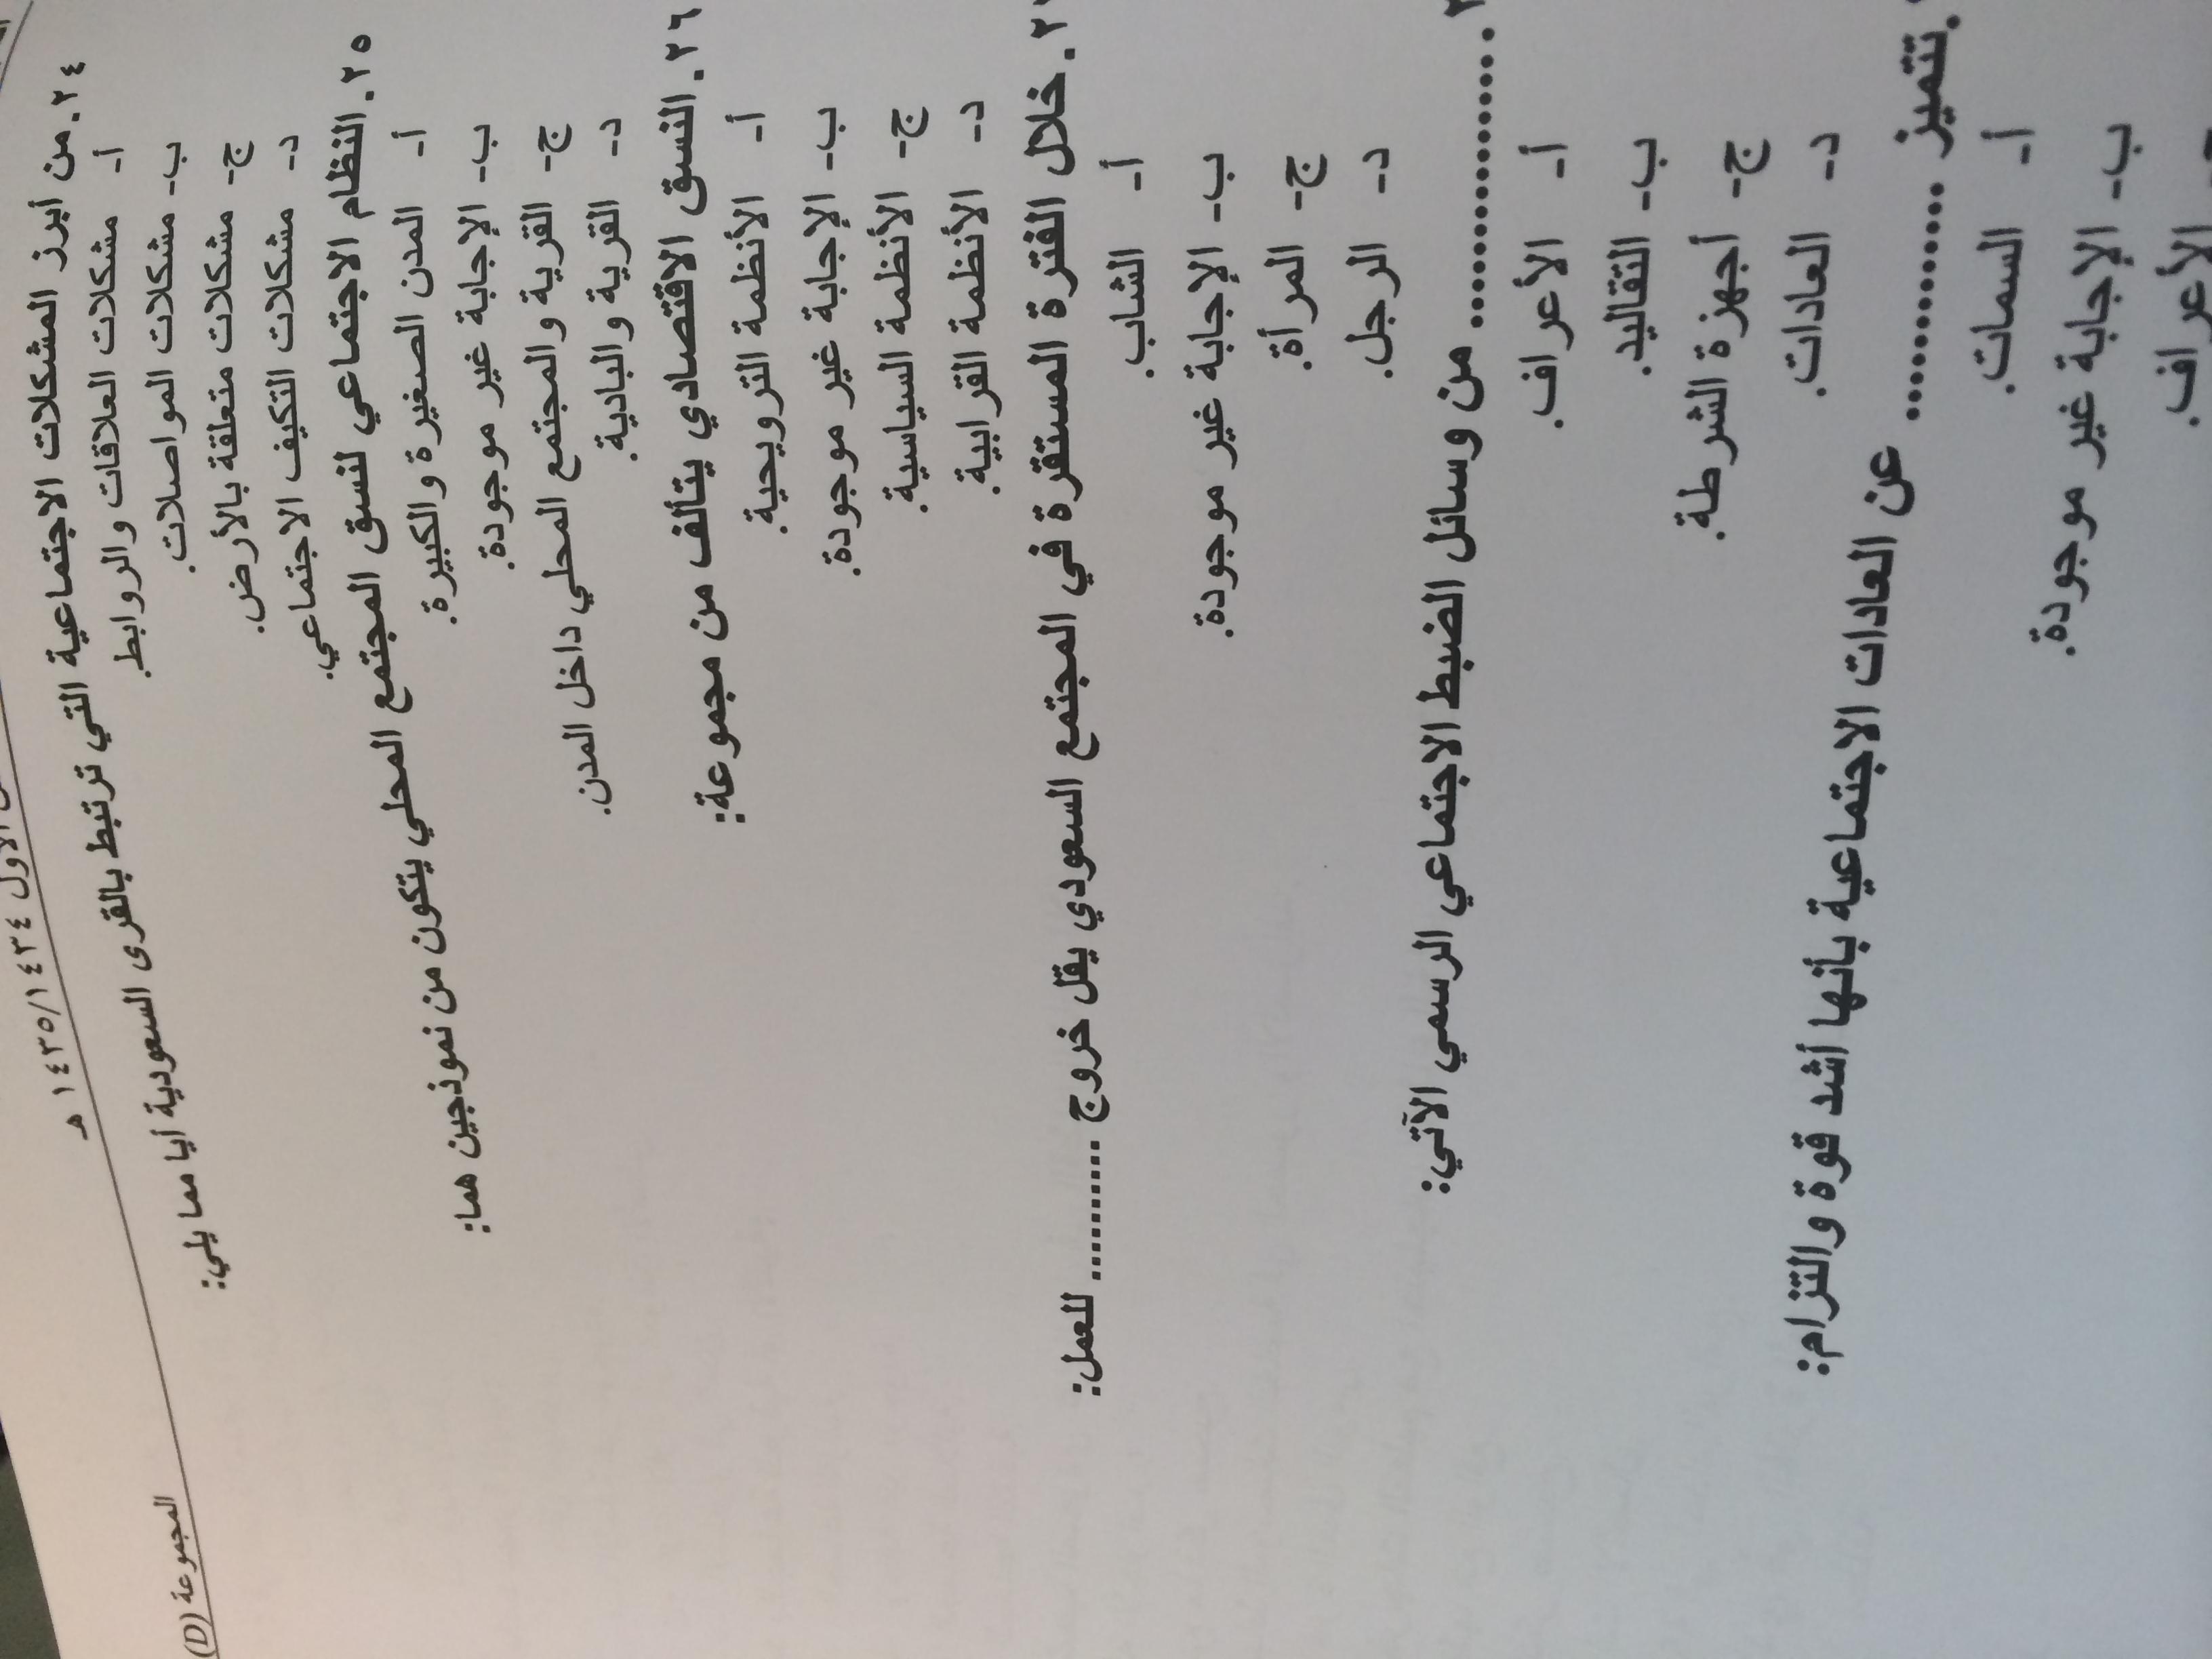 الأول ١٤٣٤/١٤٣٥ هـ
المجموعة (D)
٢٤. من أبرز المشكلات الاجتماعية التي ترتبط بالقرى السعودية أيا مما يلي:
أ- مشكلات العلاقات والروابط.
ب- مشكلات المواصلات.
ج- مشكلات متعلقة بالأرض.
د- مشكلات التكيف الاجتماعي.
٢٥. النظام الاجتماعي لنسق المجتمع المحلي يتكون من نموذجين هما:
أ- المدن الصغيرة والكبيرة.
ب- الإجابة غير موجودة.
ج- القرية والمجتمع المحلي داخل المدن.
د- القرية والبادية.
٢٦. النسق الاقتصادي يتألف من مجموعة:
أ- الأنظمة الترويحية.
ب- الإجابة غير موجودة.
ج- الأنظمة السياسية.
د- الأنظمة القرابية.
خلال الفترة المستقرة في المجتمع السعودي يقل خروج .......... للعمل:
أ- الشاب.
ب- الإجابة غير موجودة.
ج- المرأة.
د- الرجل.
................. من وسائل الضبط الاجتماعي الرسمي الآتي:
أ- الأعراف.
ب- التقاليد.
ج- أجهزة الشرطة.
د- العادات.
تتميز ............ عن العادات الاجتماعية بأنها أشد قوة والتزام:
أ- السمات.
ب- الإجابة غير موجودة.
الأعراف.